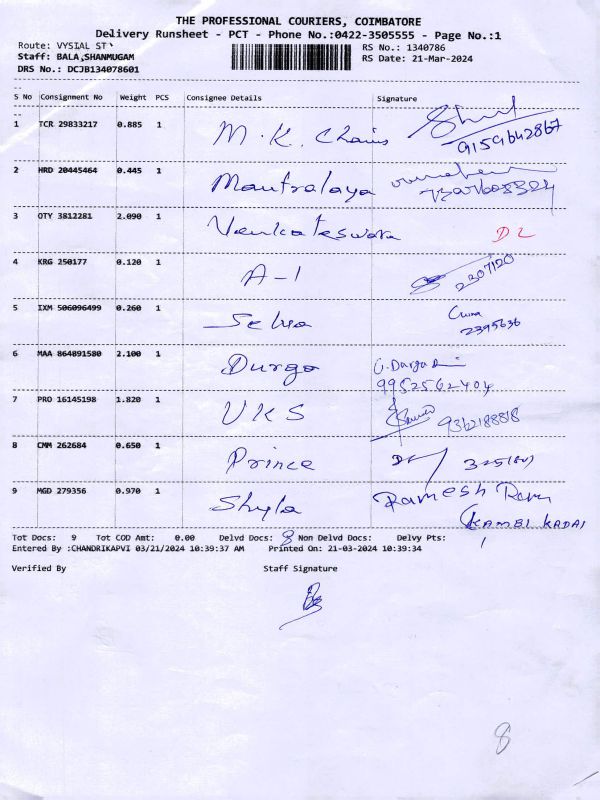 THE PROFESSIONAL COURIERS, COIMBATORE
Delivery Runsheet - PCT - Phone No.:0422-3505555 - Page No.:1
Route: VYSIAL ST
RS No.: 1340786
Staff: BALA,SHANMUGAM
RS Date: 21-Mar-2024
DRS No.: DCJB134078601
S No Consignment No Weight PCS Consignee Details Signature
1 TCR 29833217 0.885 1 M.K. Chains
9159642867
2 HRD 20445464 0.445 1 Mantralaya
3 OTY 3812281 2.090 1 Venkateswara DL
4 KRG 250177 0.120 1 A-1 2307120
5 IXM 506096499 0.260 1 Selva
2395636
6 MAA 864891580 2.100 1 Durga
9952562404
7 PRO 16145198 1.820 1 UKS 9362188818
8 CMM 262684 0.650 1 Prince
9 MGD 279356 0.970 1 Shyla Ramesh
KAMBI KADAI
Tot Docs: 9 Tot COD Amt: 0.00 Delvd Docs: 8 Non Delvd Docs: 1 Delvy Pts:
Entered By :CHANDRIKAPVI 03/21/2024 10:39:37 AM Printed On: 21-03-2024 10:39:34
Verified By Staff Signature
8